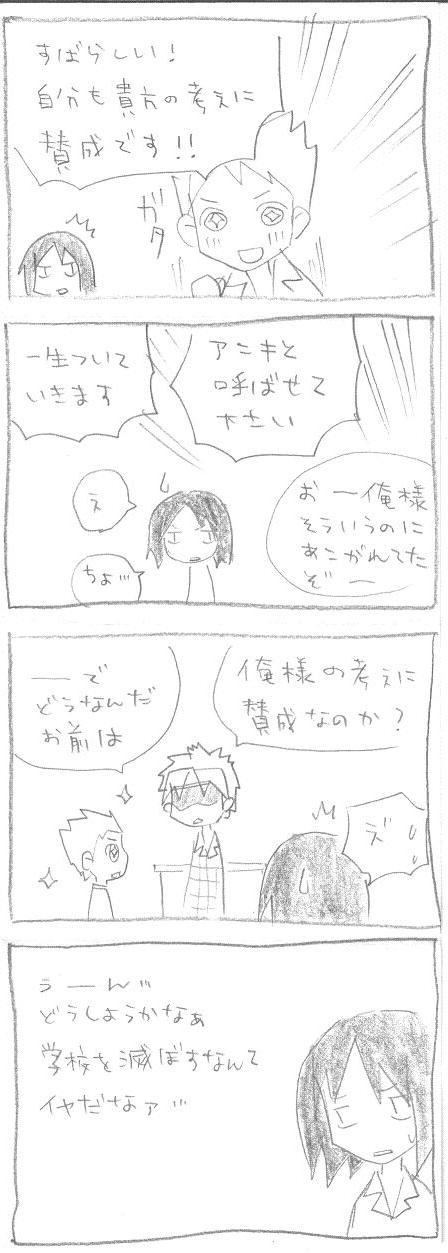 すばらしい!
自分も貴方の考えに
賛成です!!
ガタ
アニキと
呼ばせて
下さい
一生ついて
いきます
おー俺様
そういうのに
あこがれてた
ぞー
え
ちょ…
俺様の考えに
賛成なのか?
――で
どうなんだ
お前は
え゛
うーん…
どうしようかなぁ
学校を滅ぼすなんて
イヤだなァ…